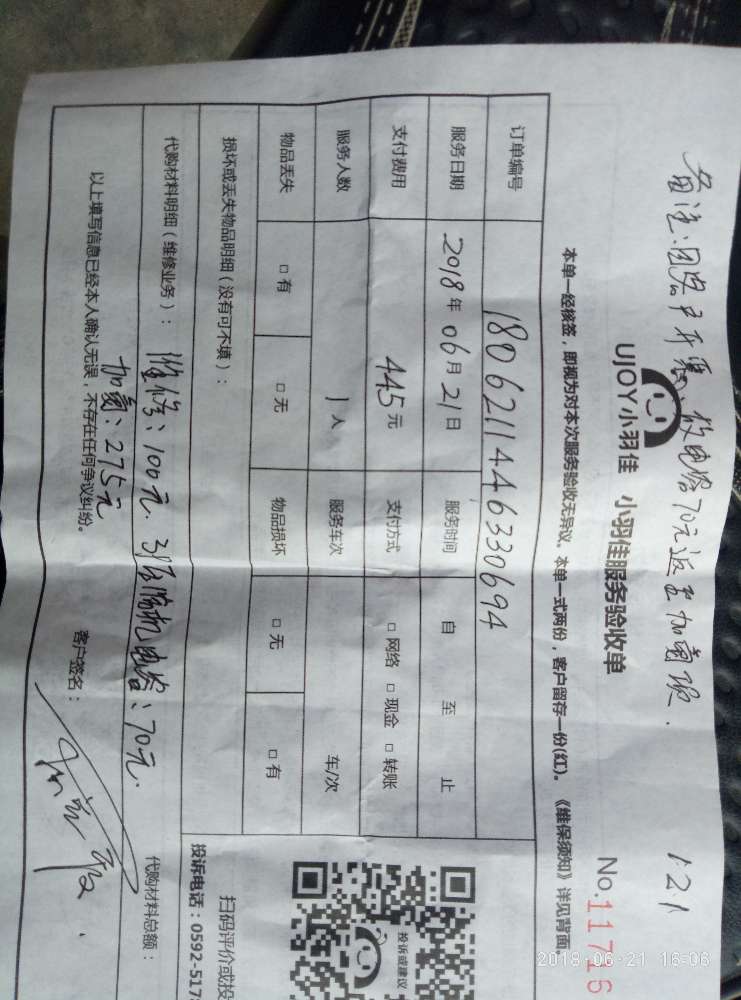 备注:因客户不愿,故电容70元返至加氟项.
1:21
UJOY小羽佳 小羽佳服务验收单
No.11716
本单一经核签,即视为对本次服务验收无异议。本单一式两份,客户留存一份(红)。 《维保须知》详见背面
订单编号 1806211446330694
服务日期 2018年06月21日 服务时间 自 至 止
支付费用 445元 支付方式 □网络 □现金 □转账
服务人数 1人 服务车次 车/次
物品丢失 □有 □无 物品损坏 □无 □有
损坏或丢失物品明细(没有可不填):
代购材料明细(维修业务): 维修:100元. 3匹压缩机电容:70元. 代购材料总额:
加氟:275元
以上填写信息已经本人确认无误,不存在任何争议纠纷。 客户签名:
投诉或建议
扫码评价或投
投诉电话:0592-517
2018-06-21 16:06